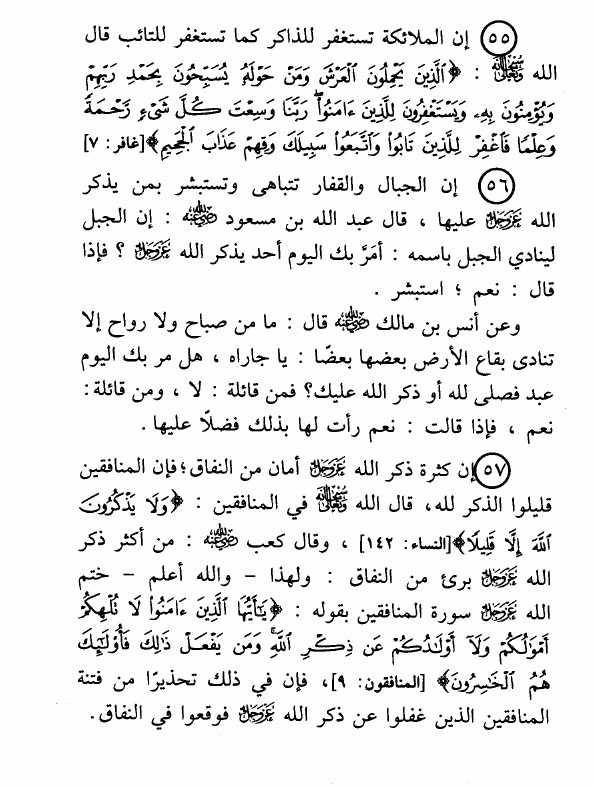 (٥٥) إن الملائكة تستغفر للذاكر كما تستغفر للتائب قال
الله سُبْحَانَهُ وَتَعَالَىٰ : ﴿ ٱلَّذِينَ يَحْمِلُونَ ٱلْعَرْشَ وَمَنْ حَوْلَهُۥ يُسَبِّحُونَ بِحَمْدِ رَبِّهِمْ
وَيُؤْمِنُونَ بِهِۦ وَيَسْتَغْفِرُونَ لِلَّذِينَ ءَامَنُوا۟ۖ رَبَّنَا وَسِعْتَ كُلَّ شَىْءٍ رَّحْمَةً
وَعِلْمًا فَٱغْفِرْ لِلَّذِينَ تَابُوا۟ وَٱتَّبَعُوا۟ سَبِيلَكَ وَقِهِمْ عَذَابَ ٱلْجَحِيمِ ﴾[غافر: ٧]
(٥٦) إن الجبال والقفار تتباهى وتستبشر بمن يذكر
الله عَزَّ وَجَلَّ عليها ، قال عبد الله بن مسعود رَضِيَ اللَّهُ عَنْهُ : إن الجبل
لينادي الجبل باسمه : أمَرَّ بك اليوم أحد يذكر الله عَزَّ وَجَلَّ ؟ فإذا
قال : نعم ؛ استبشر .
وعن أنس بن مالك رَضِيَ اللَّهُ عَنْهُ قال : ما من صباح ولا رواح إلا
تنادى بقاع الأرض بعضها بعضًا : يا جاراه ، هل مر بك اليوم
عبد فصلى لله أو ذكر الله عليك؟ فمن قائلة : لا ، ومن قائلة:
نعم ، فإذا قالت : نعم رأت لها بذلك فضلًا عليها .
(٥٧) إن كثرة ذكر الله عَزَّ وَجَلَّ أمان من النفاق؛ فإن المنافقين
قليلوا الذكر لله، قال الله سُبْحَانَهُ وَتَعَالَىٰ في المنافقين : ﴿ وَلَا يَذْكُرُونَ
ٱللَّهَ إِلَّا قَلِيلًا ﴾[النساء: ١٤٢] ، وقال كعب رَضِيَ اللَّهُ عَنْهُ : من أكثر ذكر
الله عَزَّ وَجَلَّ برئ من النفاق : ولهذا – والله أعلم – ختم
الله عَزَّ وَجَلَّ سورة المنافقين بقوله : ﴿ يَـٰٓأَيُّهَا ٱلَّذِينَ ءَامَنُوا۟ لَا تُلْهِكُمْ
أَمْوَٰلُكُمْ وَلَآ أَوْلَـٰدُكُمْ عَن ذِكْرِ ٱللَّهِۚ وَمَن يَفْعَلْ ذَٰلِكَ فَأُو۟لَـٰٓئِكَ
هُمُ ٱلْخَـٰسِرُونَ ﴾ [المنافقون: ٩]، فإن في ذلك تحذيرًا من فتنة
المنافقين الذين غفلوا عن ذكر الله عَزَّ وَجَلَّ فوقعوا في النفاق.